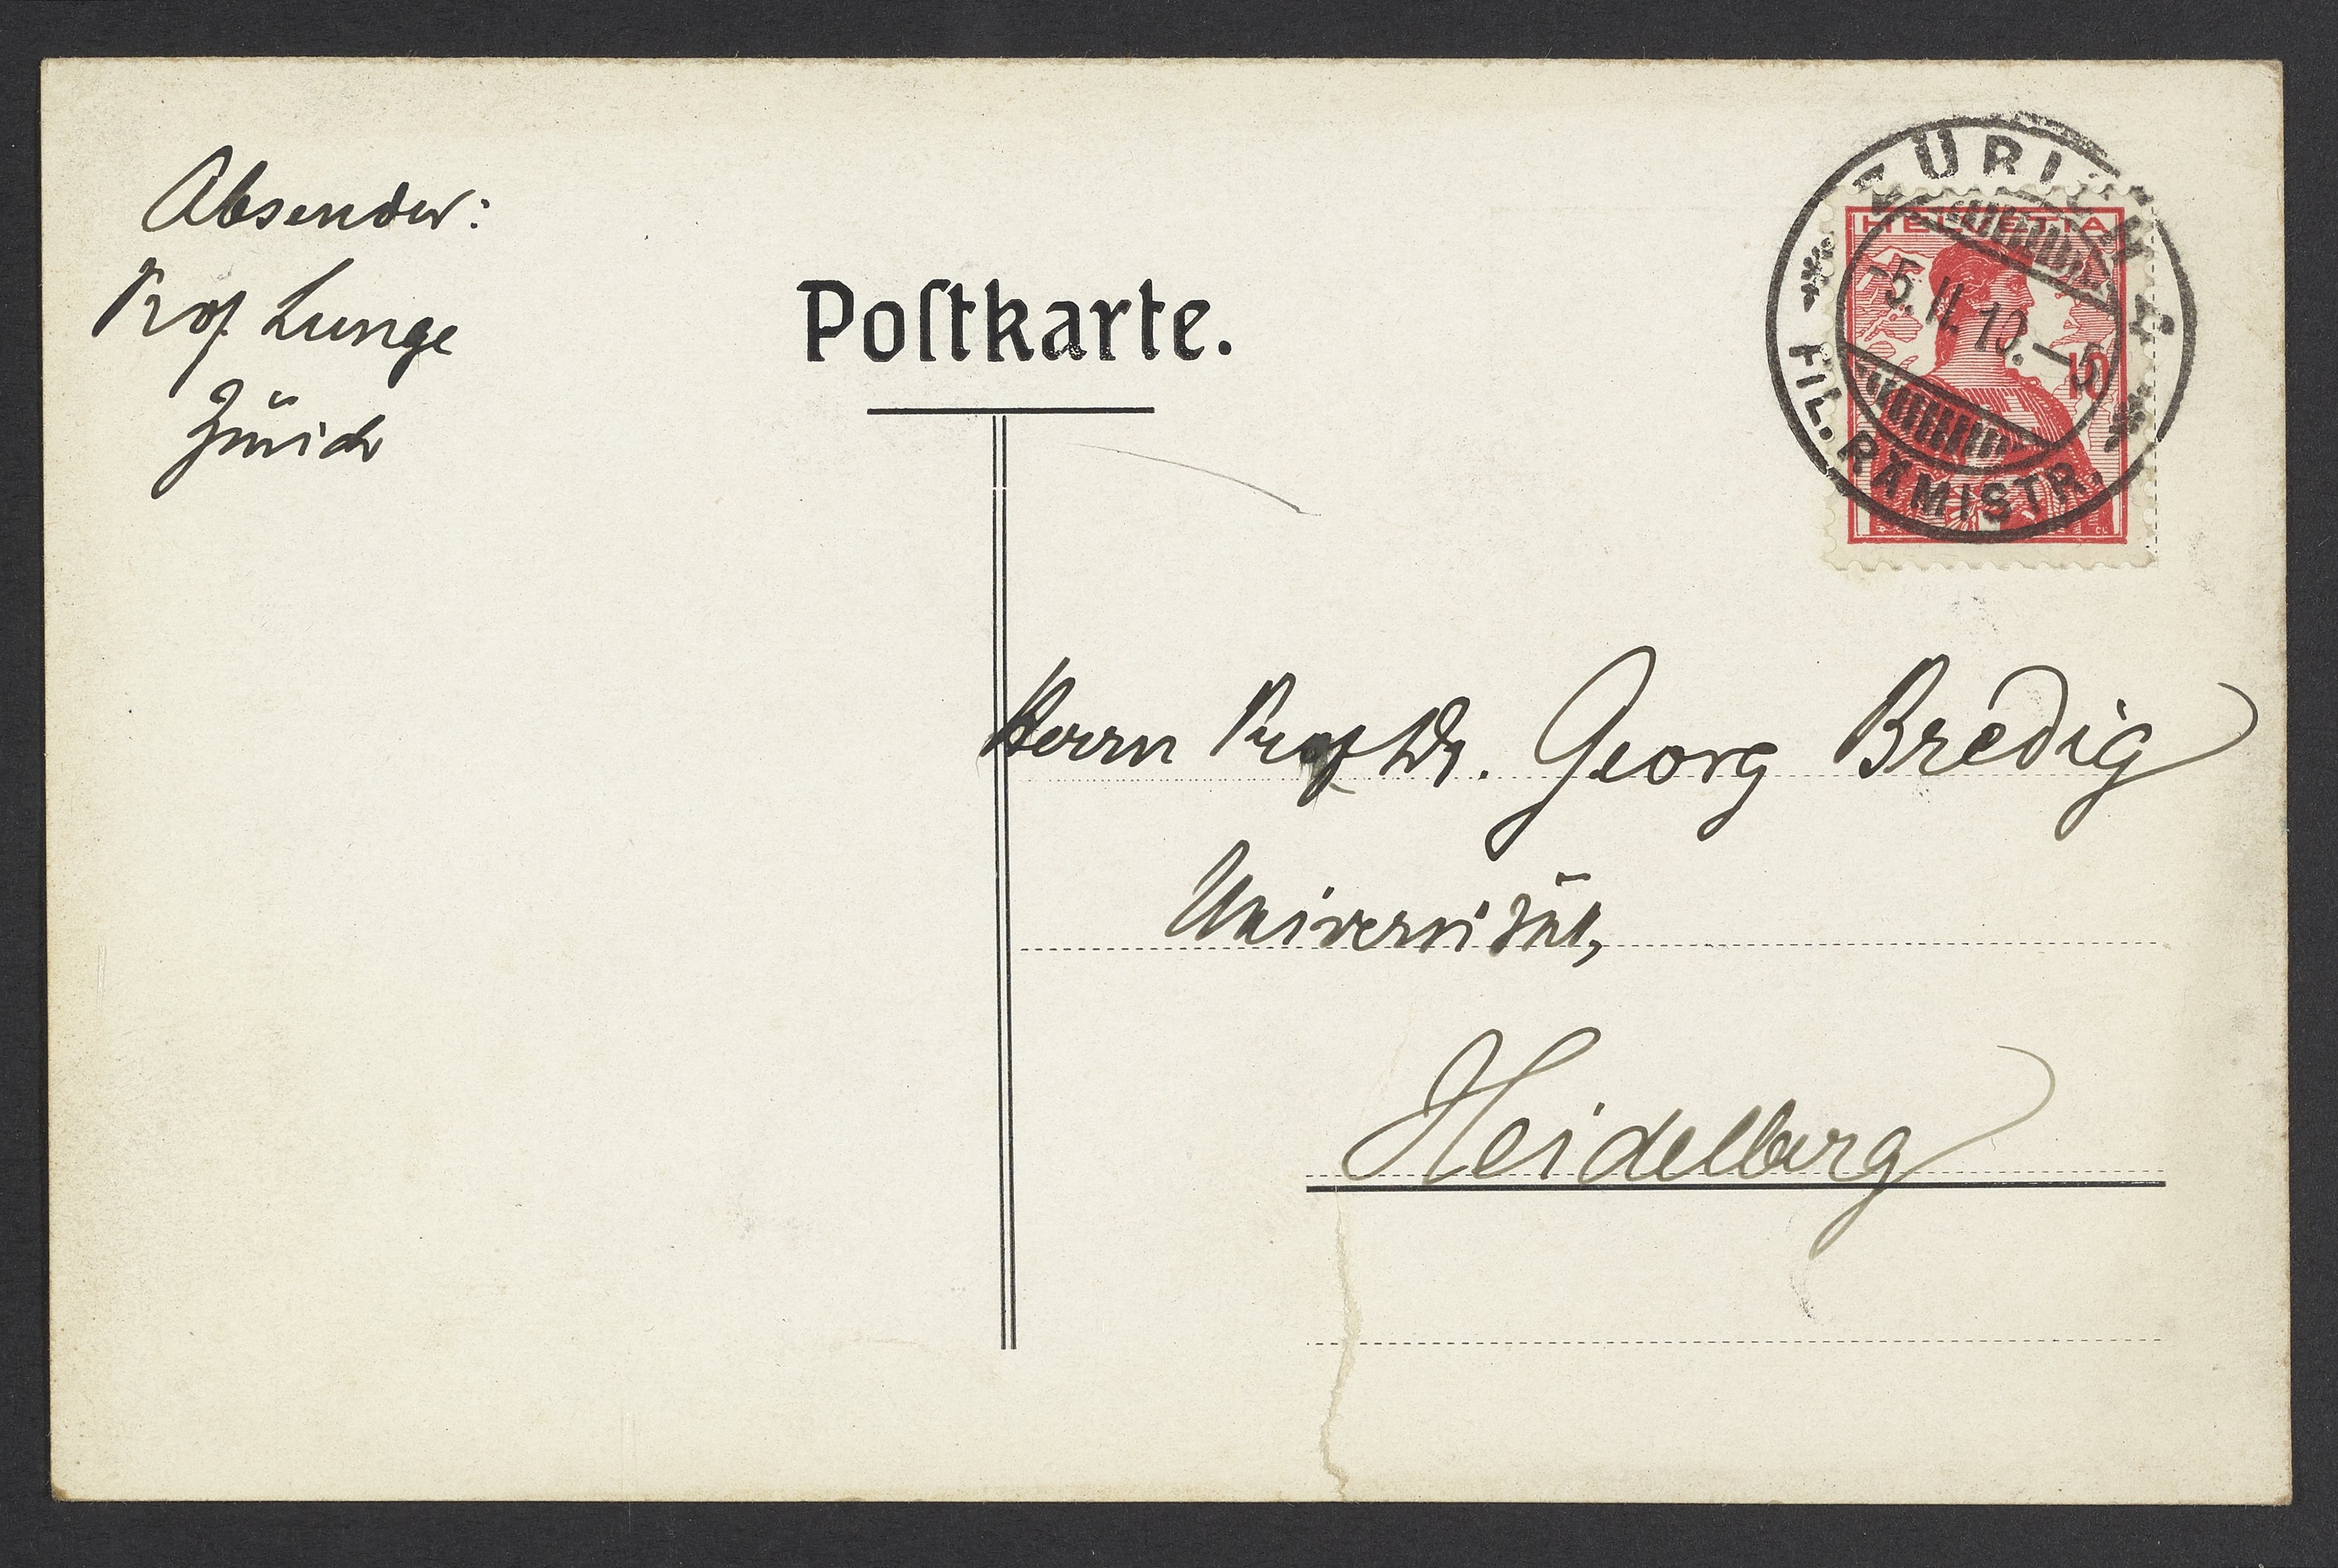 Absender:
Prof Lunge
Zürich
Poſtkarte.
ZÜRICH
HELVETIA
-5.II.10.-5
10
FIL. RÄMISTR.
Herrn Prof Dr. Georg Bredig
Universität,
Heidelberg